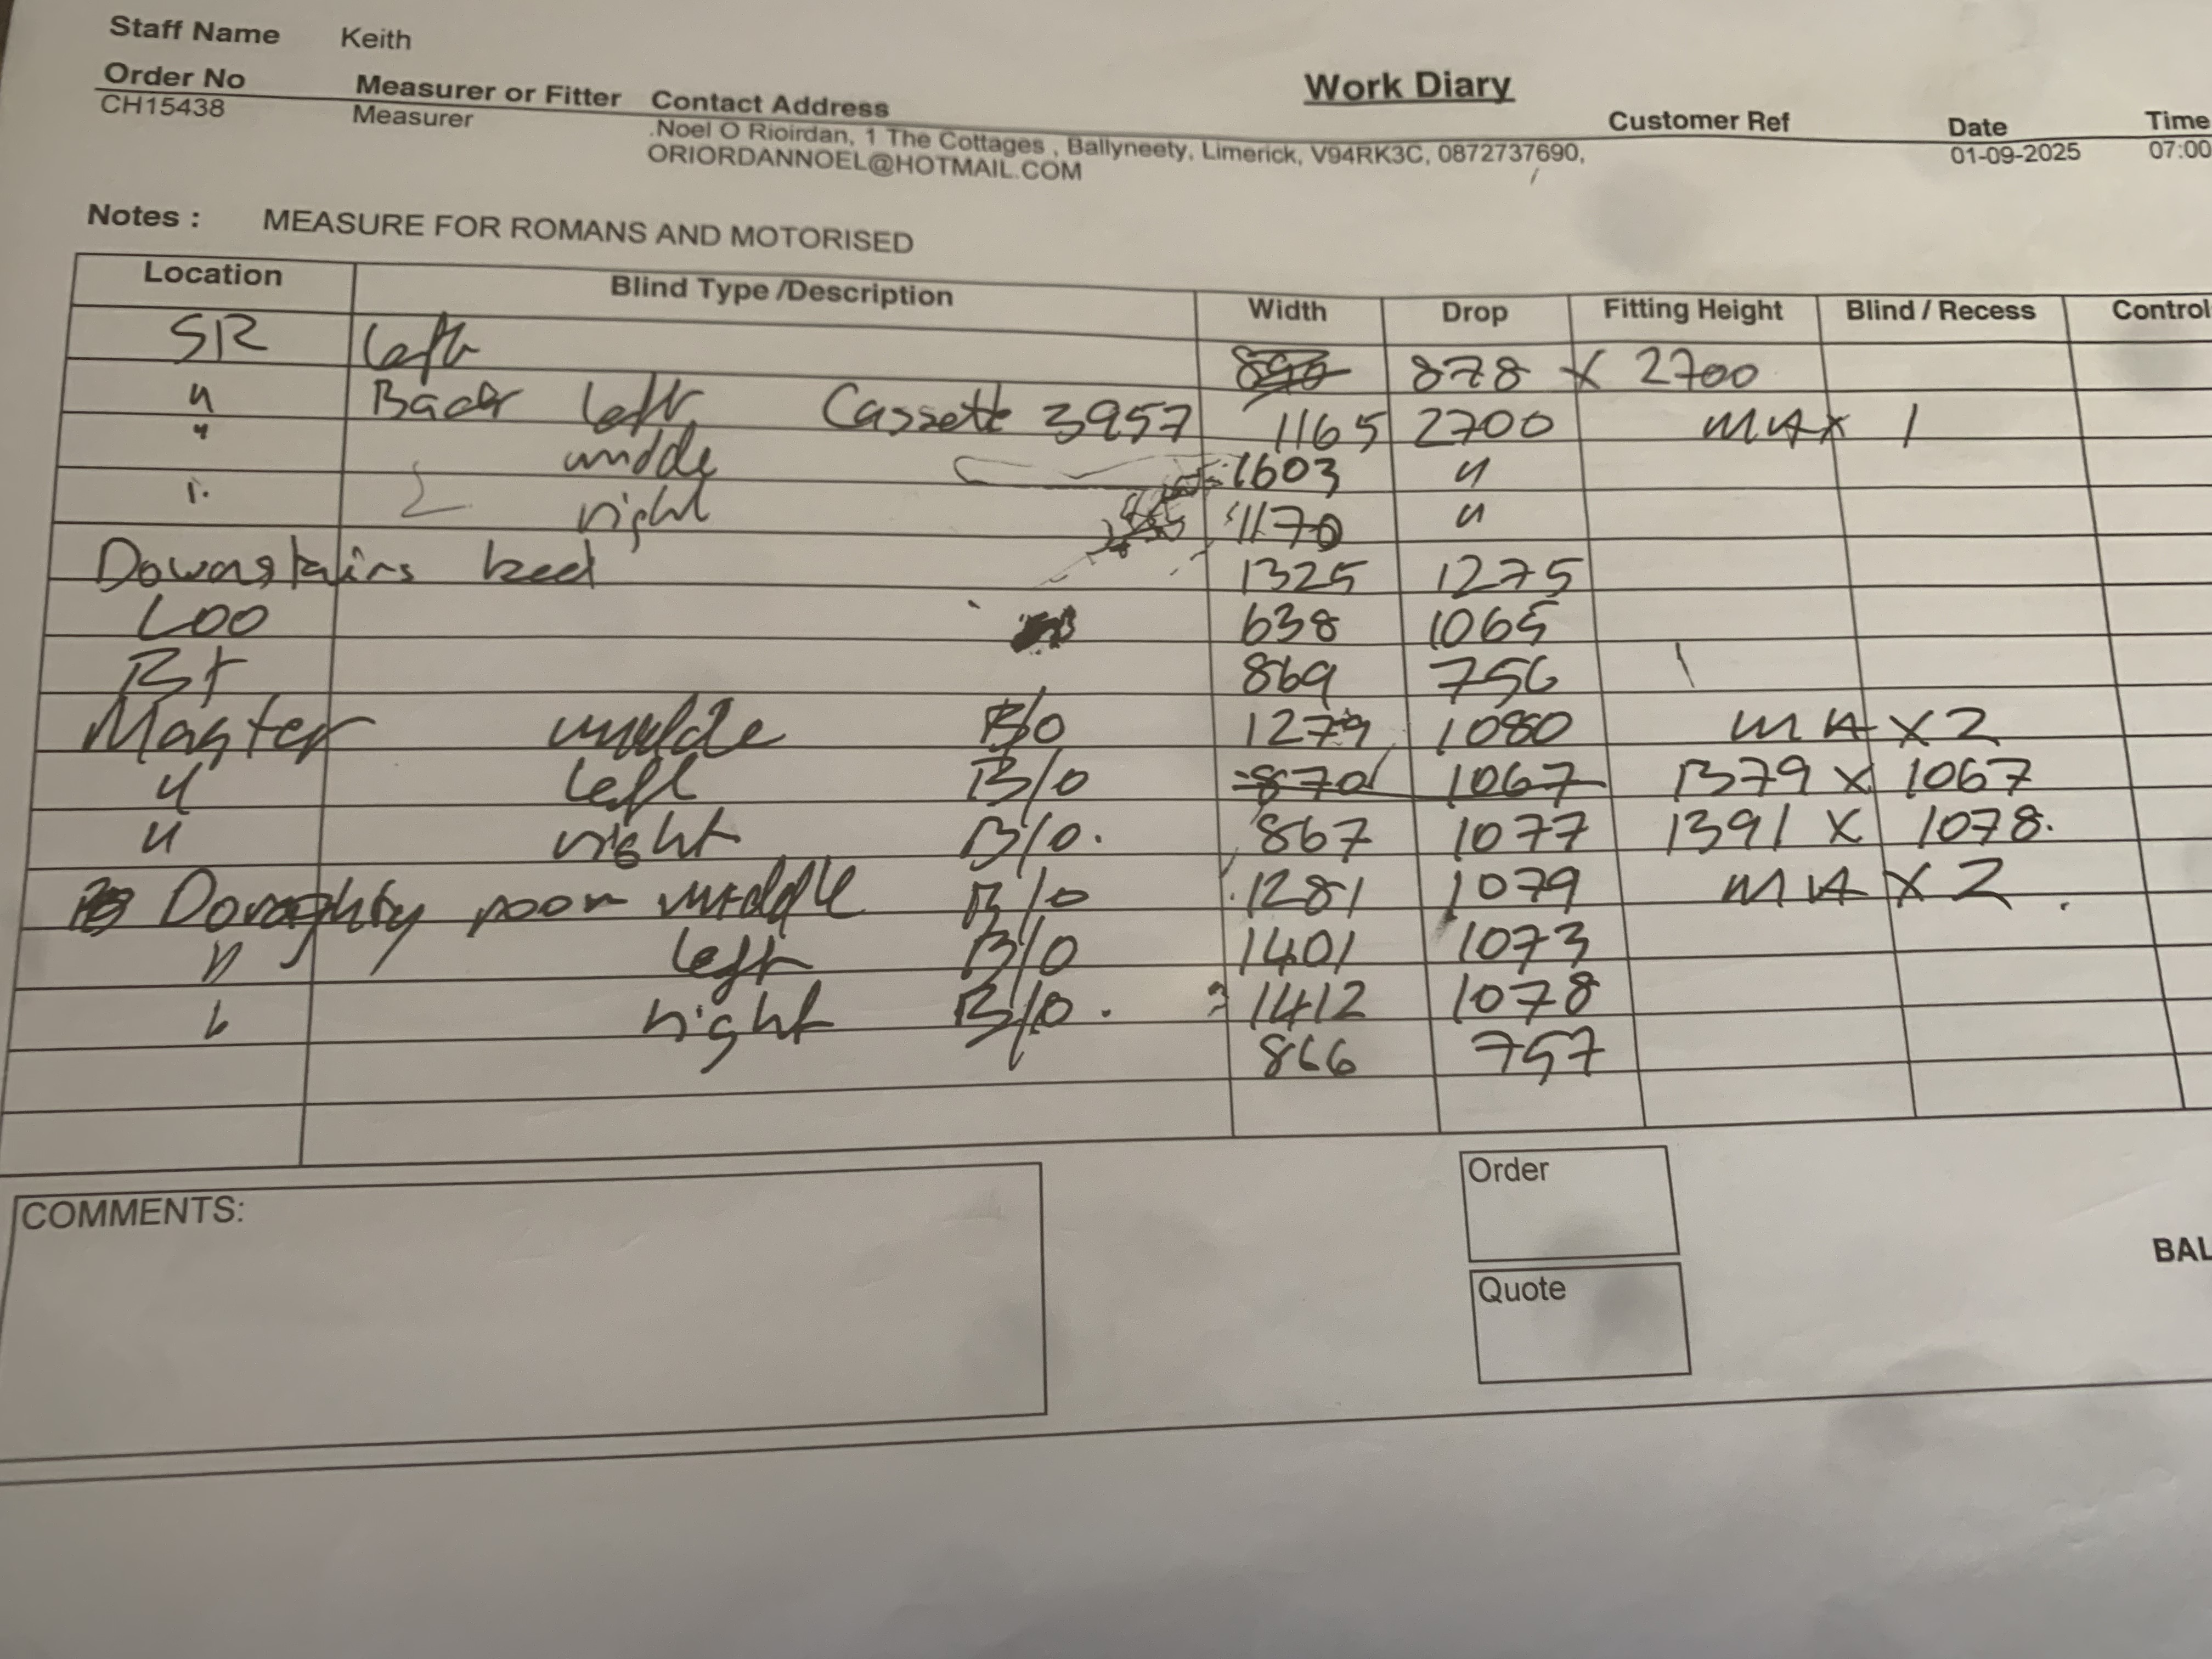 Staff Name Keith
Work Diary
Order No Measurer or Fitter Contact Address Customer Ref Date Time
CH15438 Measurer .Noel O Rioirdan, 1 The Cottages , Ballyneety, Limerick, V94RK3C, 0872737690, 01-09-2025 07:00
ORIORDANNOEL@HOTMAIL.COM
Notes : MEASURE FOR ROMANS AND MOTORISED
Location Blind Type /Description Width Drop Fitting Height Blind / Recess Control
SR left 890 878 X 2700
" Back left Cassette 3957 1165 2700 MAX 1
" middle 1603 "
" right 1170 "
Downstairs bed 1325 1275
Loo 638 1065
869 756
Master middle B/O 1279 1080 MAX 2
" left B/O 870 1067 1379 X 1067
" right B/O. 867 1077 1391 X 1078.
room middle B/O 1281 1079 MAX 2
" left B/O 1401 1073
" right B/O. 1412 1078
866 757
COMMENTS:
Order
Quote
BAL